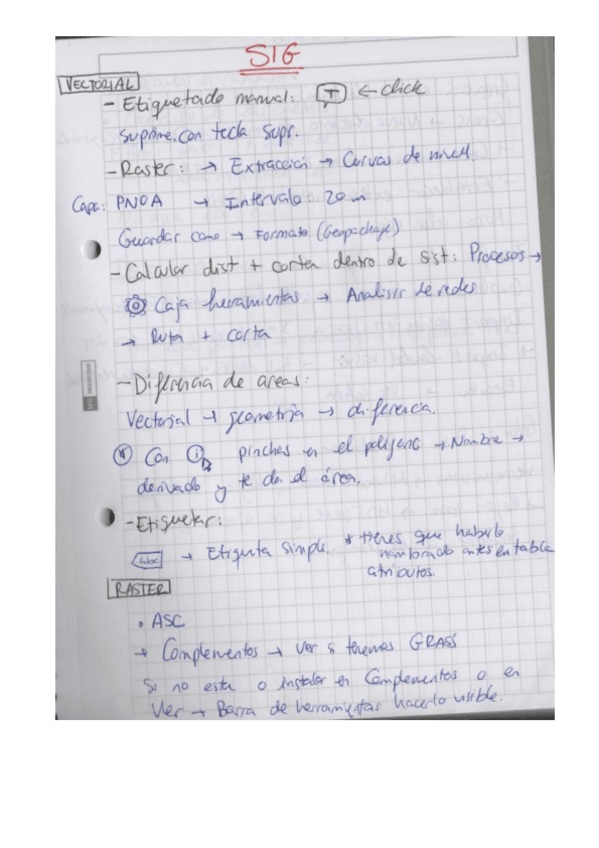 SIG
VECTORIAL
- Etiquetado manual: T ← click
suprime con tecla supr.
- Raster: → Extracción → Curvas de nivel
Capa: PNOA → Intervalo 20 m
Guardar como → Formato (Geopackage)
- Calcular dist + corta dentro de sist: Procesos →
Caja herramientas → Analisis de redes
→ Ruta + corta
- Diferencia de areas:
Vectorial → geometria → diferencia.
Con i pinchas en el poligono → Nombre →
derivado y te da el área.
- Etiquetar:
abc → Etiqueta simple. * tienes que haberlo
nombrado antes en tabla
atributos.
RASTER
• ASC
→ Complementos → Ver si tenemos GRASS
Si no esta o instalar en Complementos o en
Ver → Barra de herramientas hacerlo visible.